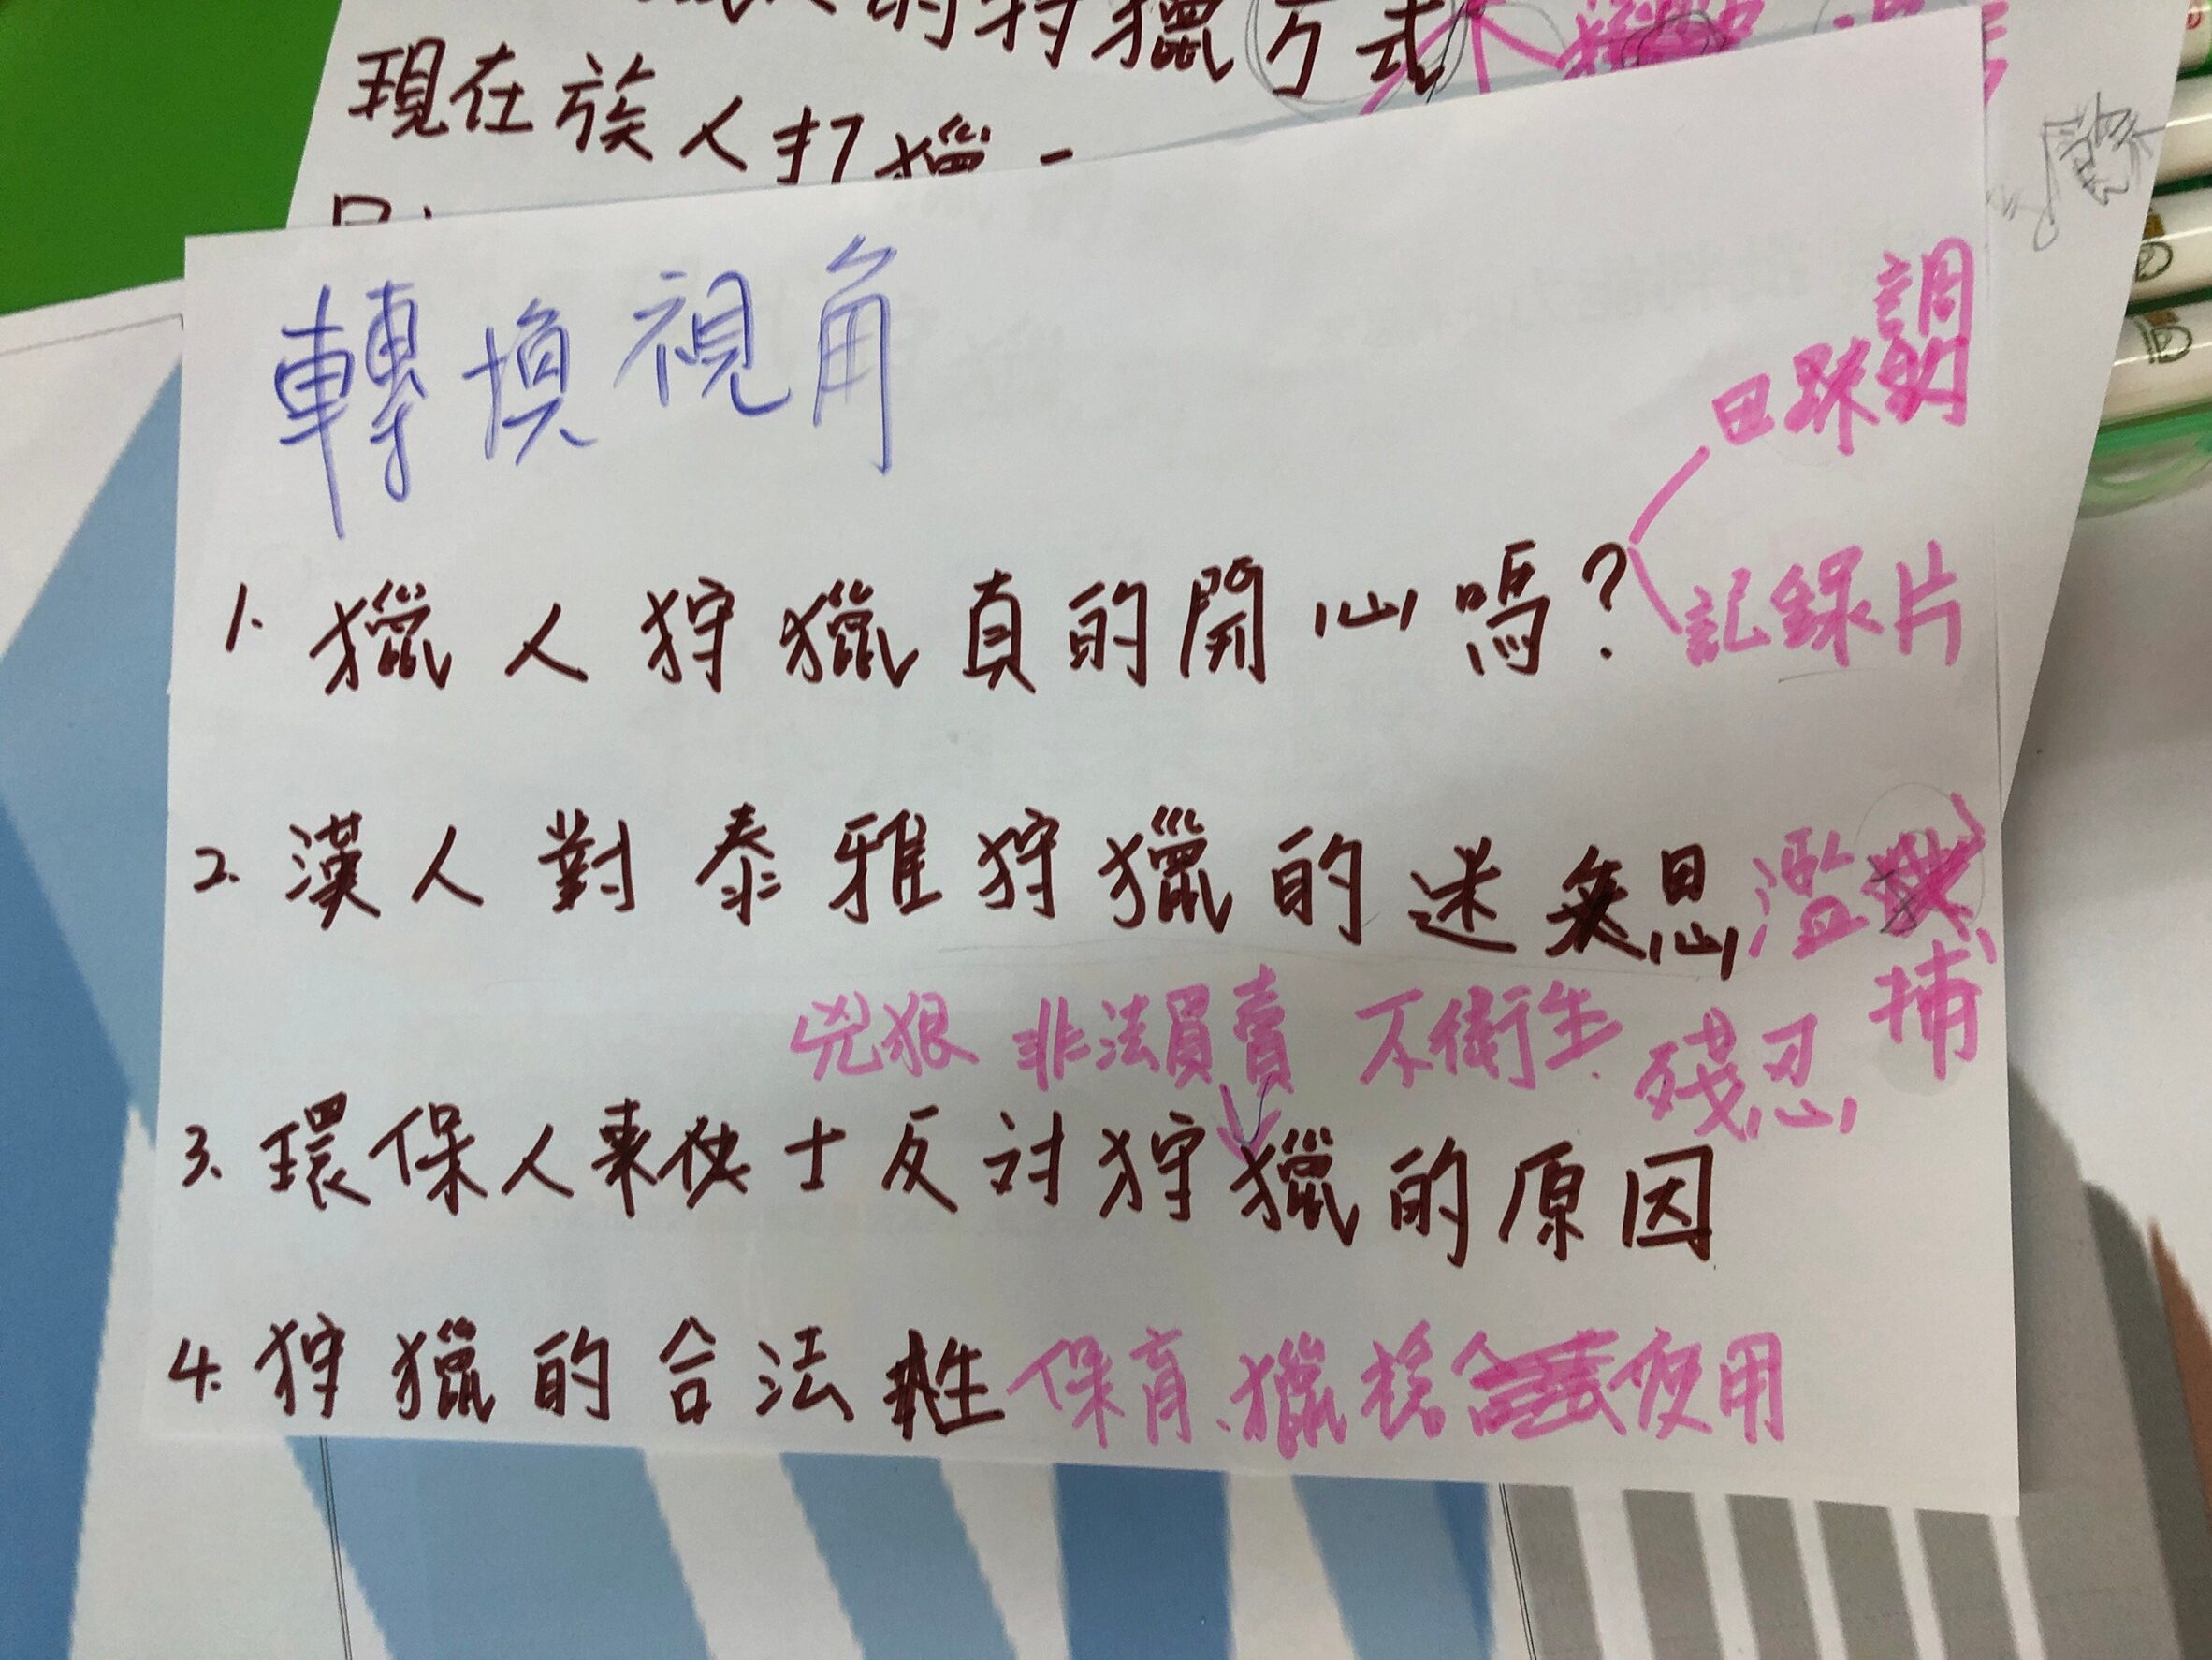 人的狩獵方式
現在族人打獵
轉換視角
調
田野
1. 獵人狩獵真的開心嗎?
記錄片
2. 漢人對泰雅狩獵的迷思 濫
捕
兇狠 非法買賣 不衛生 殘忍
3. 環保人士反對狩獵的原因
4. 狩獵的合法性 保育、獵槍使用